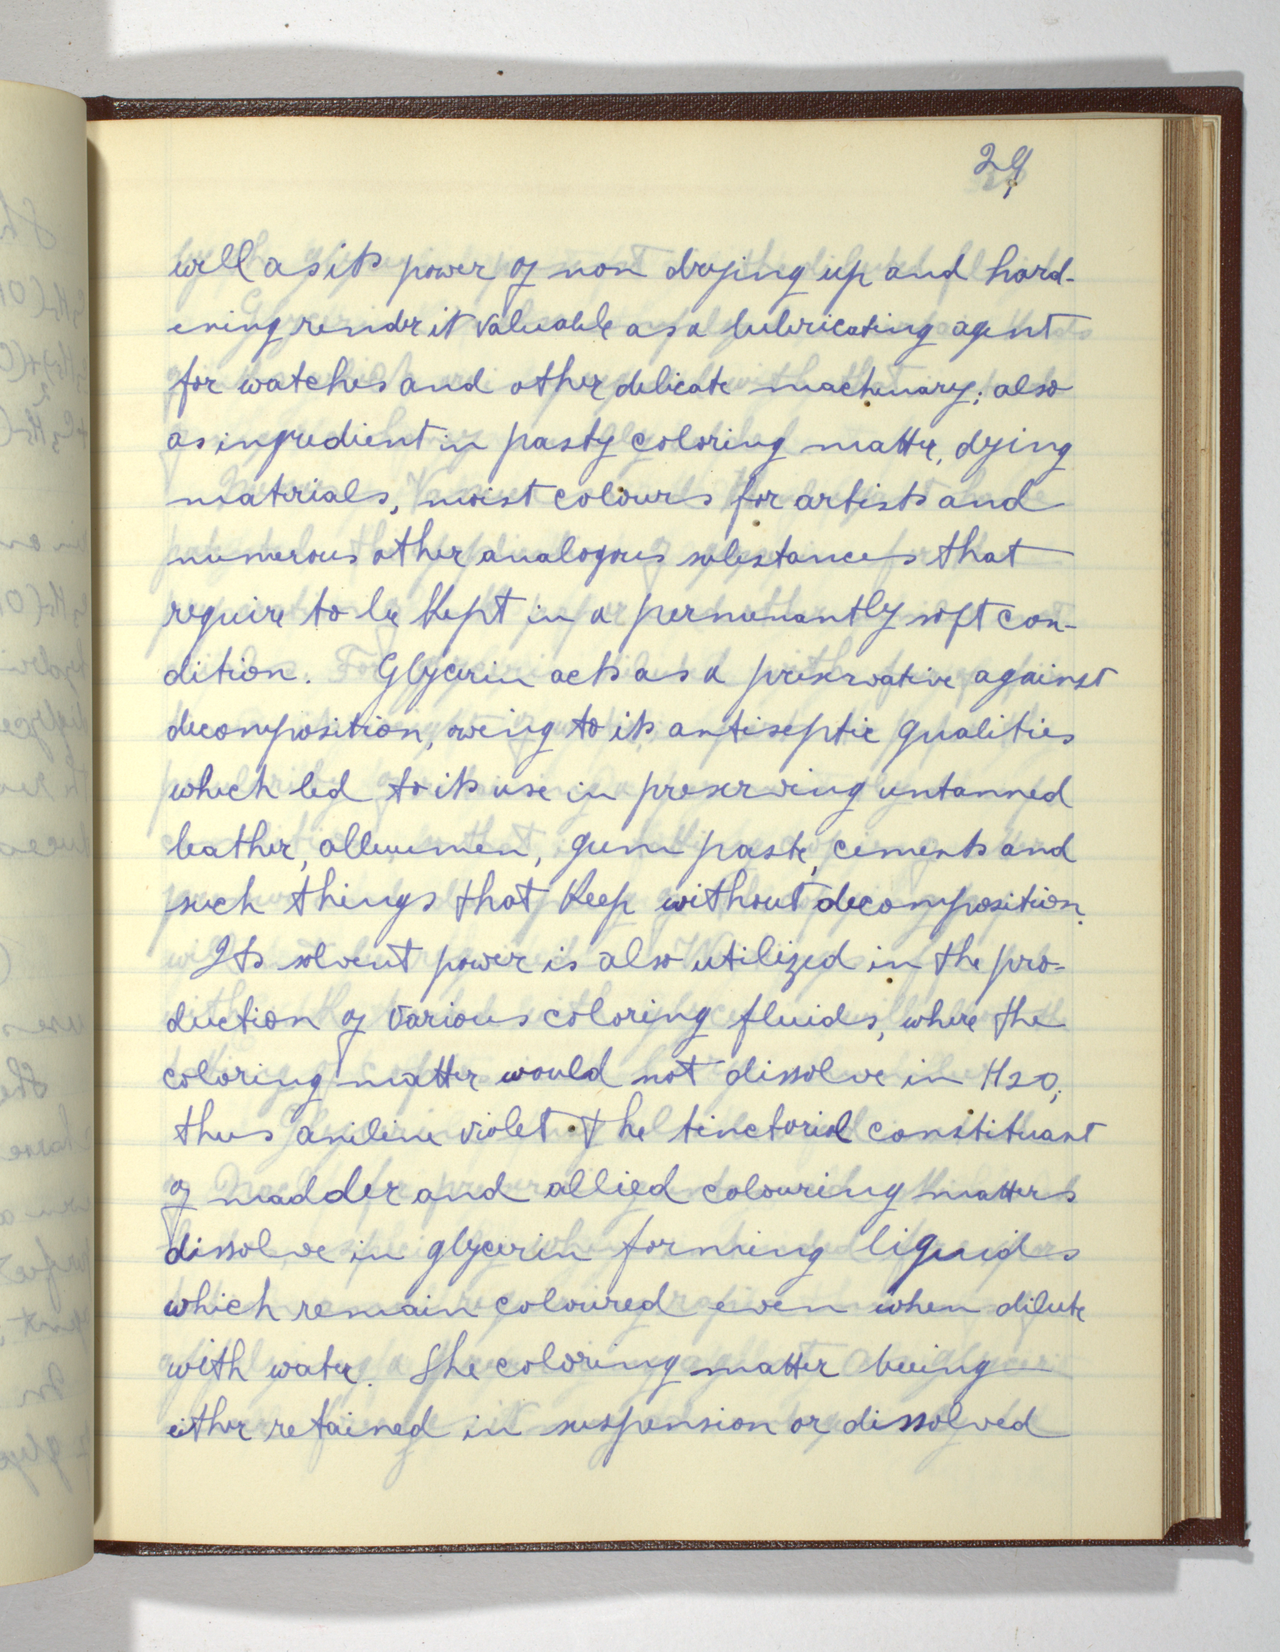 29
well as its power of non drying up and hard-
ening render it valuable as a lubricating agent
for watches and other delicate machinary; also
as ingredient in pasty coloring matter, dying
materials, moist colours for artists and
numerous other analogous substances that
require to be kept in a permanantly soft con-
dition. Glycerin acts as a preservative against
decomposition, owing to its antiseptic qualities
which led to its use in preserving untanned
leather, albumen, gum paste, cements and
such things that keep without decomposition.
Its solvent power is also utilized in the pro-
duction of various coloring fluids, where the
coloring matter would not dissolve in H2O;
thus aniline violet the tinctorial constituant
of madder and allied colouring matters
dissolve in glycerin forming liquids
which remain coloured even when dilute
with water. The coloring matter being
either retained in suspension or dissolved